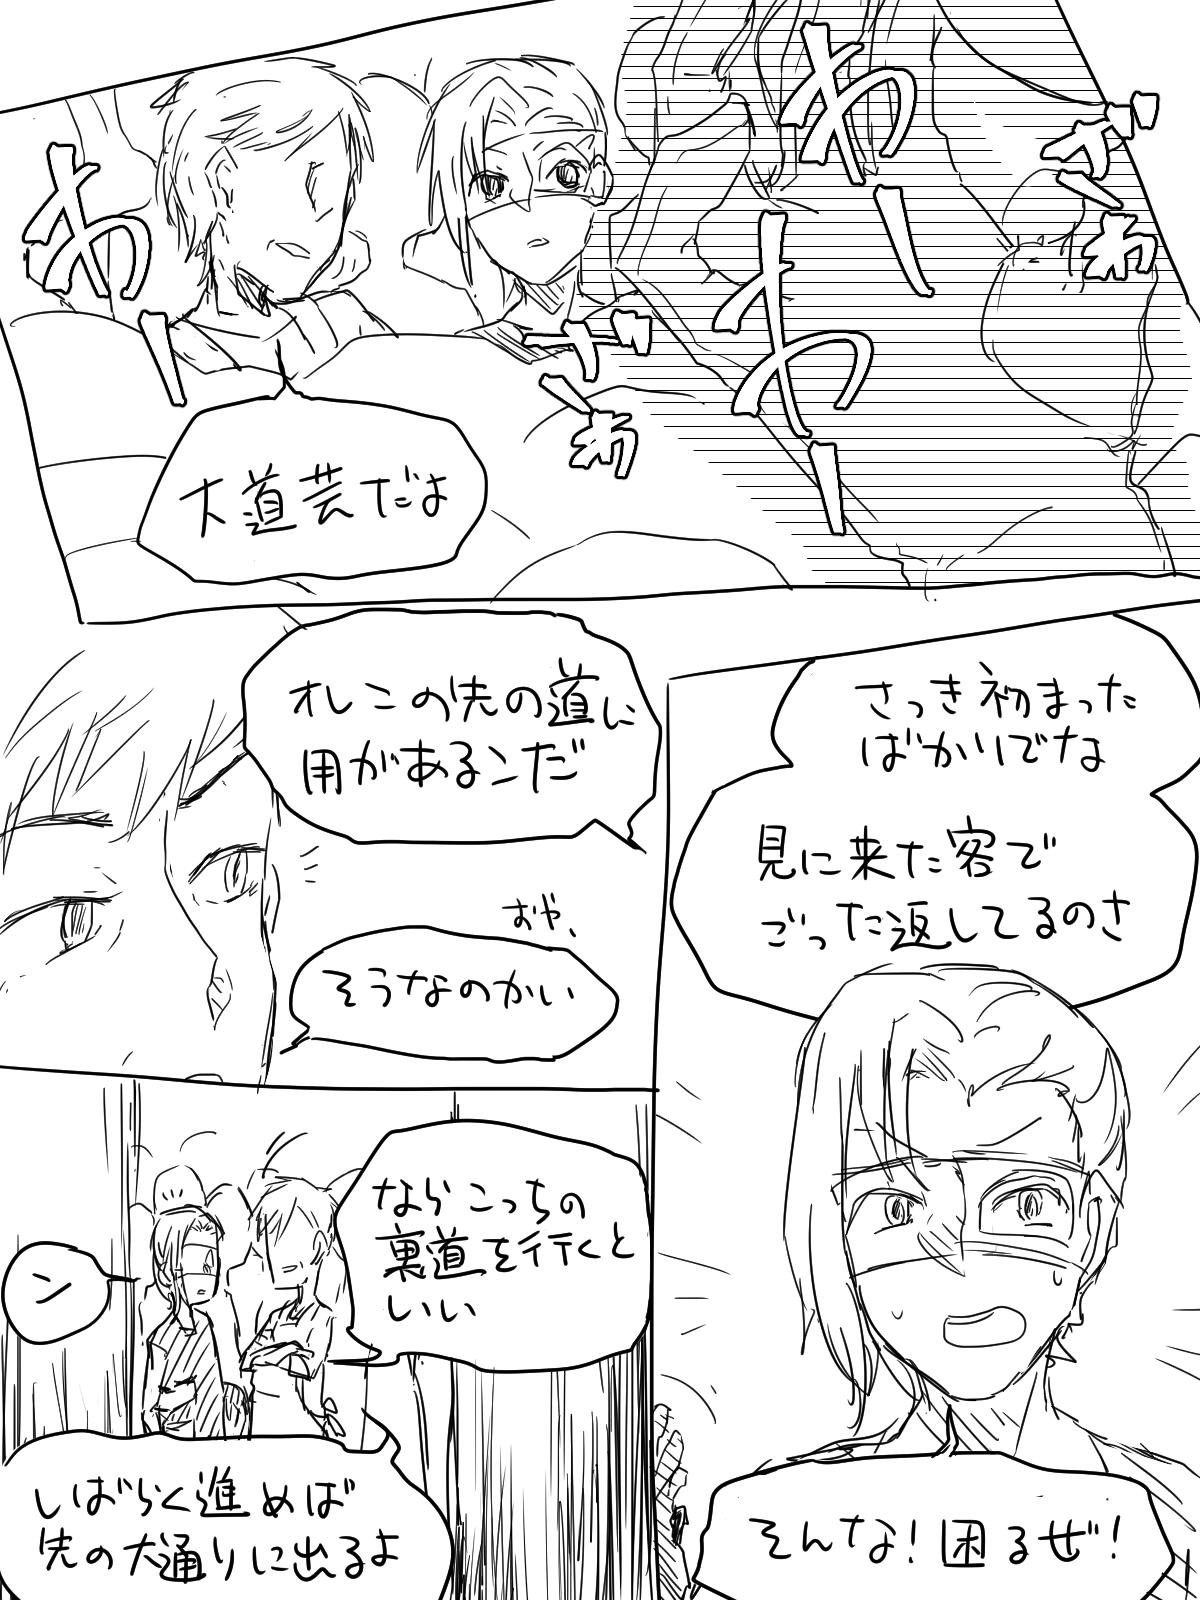 わー
ざわ
わー
ざわ
わー
大道芸だよ
さっき初まった
ばかりでな
見に来た客で
ごった返してるのさ
そんな！困るぜ！
オレこの先の道に
用があるンだ
おや、
そうなのかい
ならこっちの
裏道を行くと
いい
ン
しばらく進めば
先の大通りに出るよ